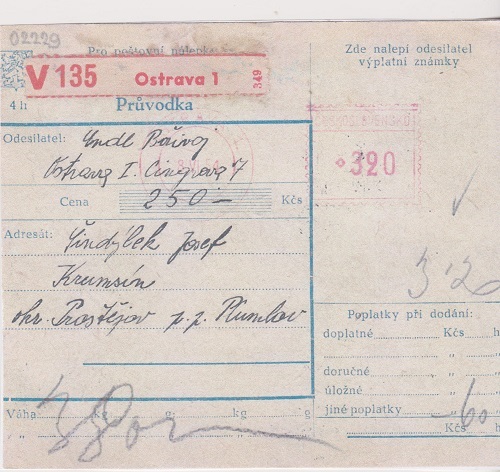 02229
Pro poštovní nálepku
V 135 Ostrava 1 349
Zde nalepí odesilatel
výplatní známky
4 h Průvodka
Odesilatel: Bořivoj
Ostrava I. 7
ČESKOSLOVENSKO
320
Cena 250- Kčs
Adresát: Šindýlek Josef
Krumsín
okr. Prostějov p. p. Plumlov
3·20
Poplatky při dodání:
doplatné Kčs h
" "
doručné " "
úložné " "
jiné poplatky -60 "
Kčs h
Váha kg g; kg g
" " " "